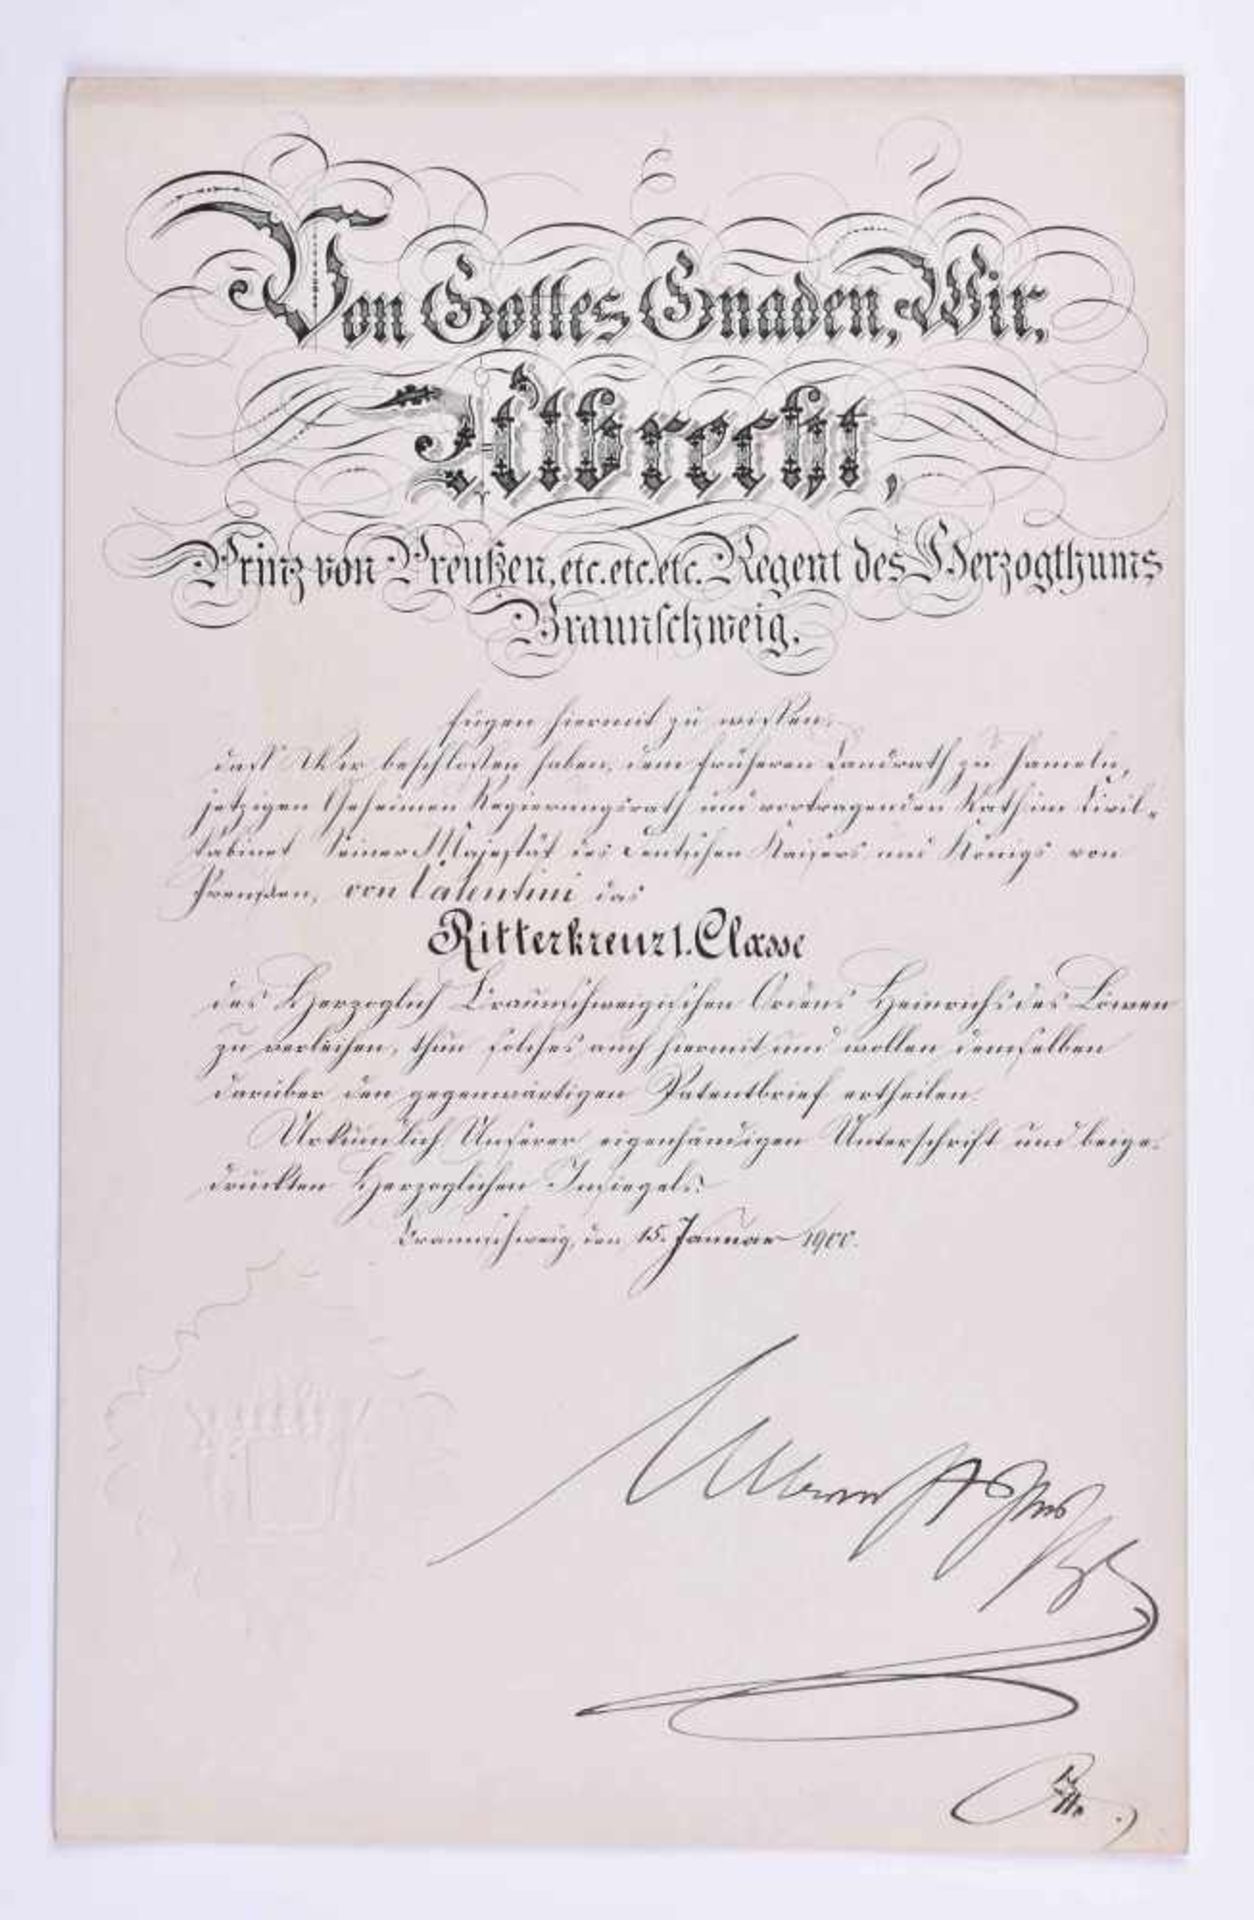 Von Gottes Gnaden, Wir,
Albrecht,
Prinz von Preußen, etc. etc. etc. Regent des Herzogthums
Braunschweig.
fügen hiermit zu wissen:
daß Wir beschlossen haben, dem früheren Landrath zu Hameln,
jetzigen Geheimen Regierungsrath und vortragenden Rath im Civil-
kabinet Seiner Majestät des Deutschen Kaisers und Königs von
Preußen, von Valentini das
Ritterkreuz 1. Classe
des Herzoglich Braunschweigischen Ordens Heinrichs des Löwen
zu verleihen, thun solches auch hiermit und wollen demselben
darüber den gegenwärtigen Patentbrief ertheilen.
Urkundlich Unserer eigenhändigen Unterschrift und beige-
druckten Herzoglichen Insiegels.
Braunschweig, den 15. Januar 1900.
Albrecht